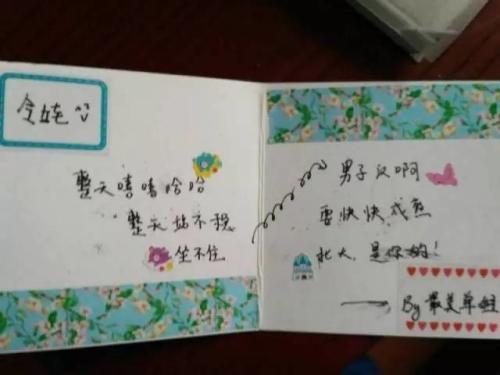 整天嘻嘻哈哈
整天站不稳
坐不住
男子汉啊
要快快成熟
北大是你的!
By 最美单姐